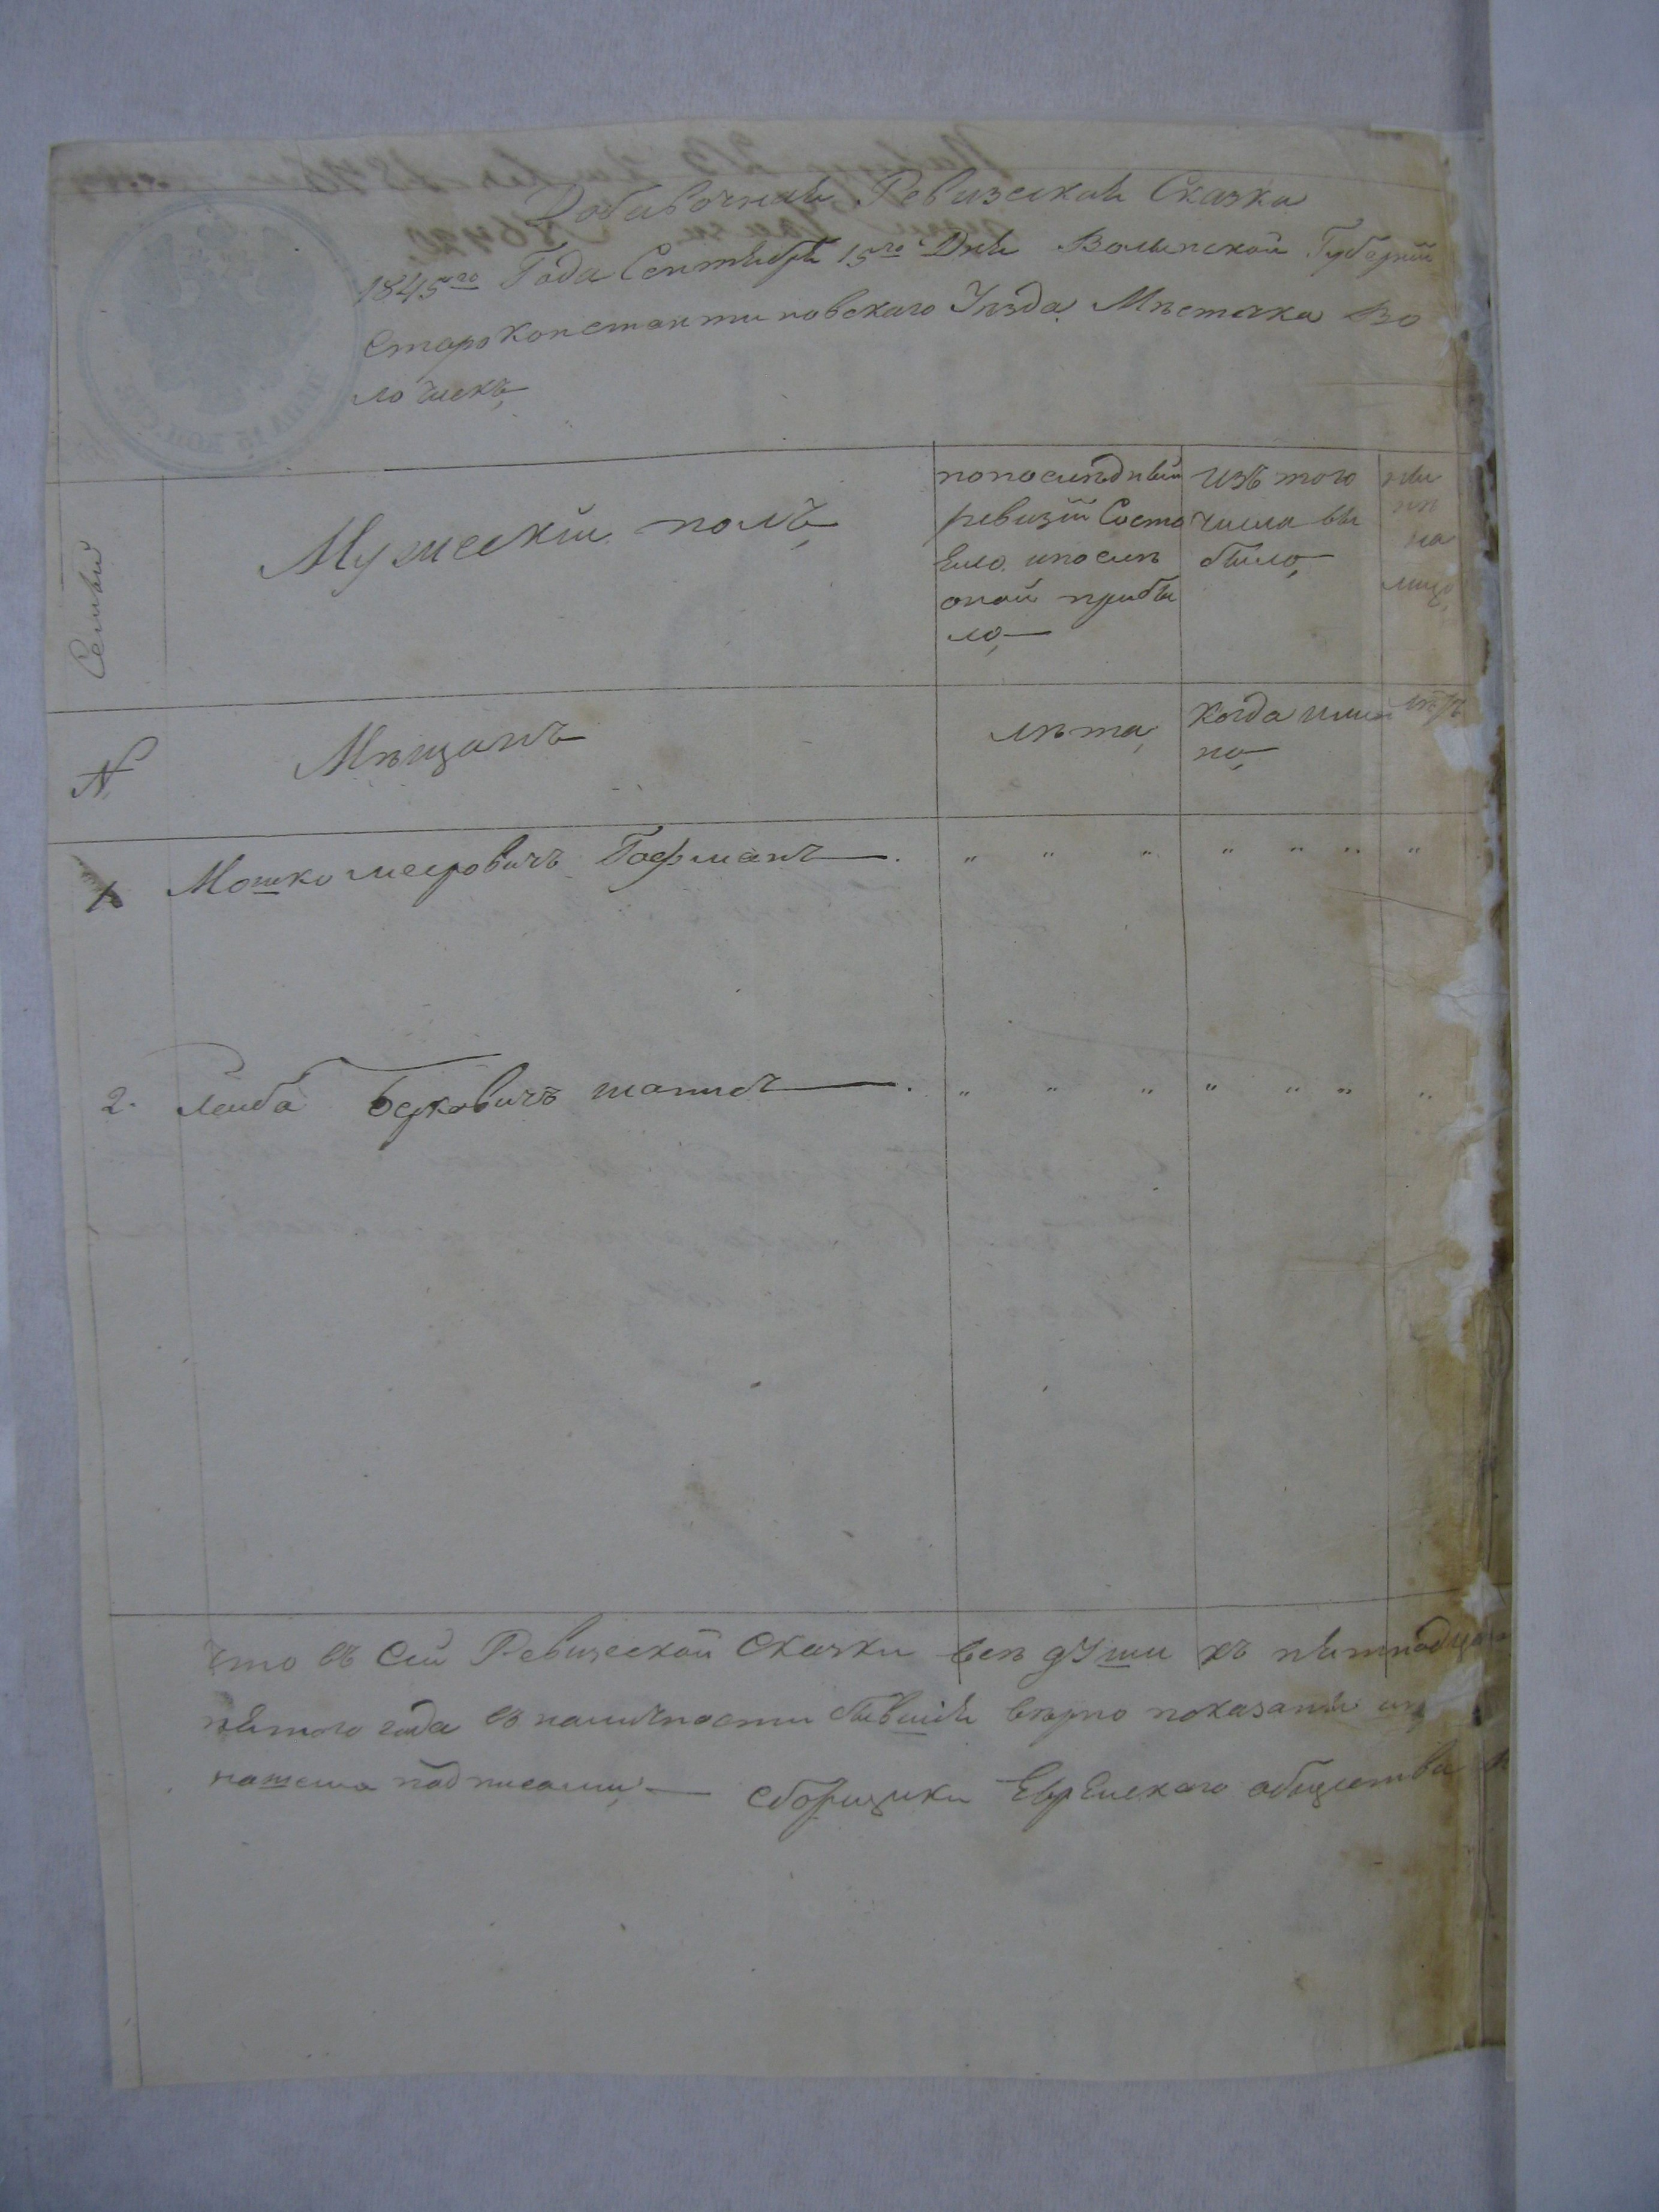 Добавочная Ревизская Сказка
1845го Года Сентября 15го Дня Волынской Губернии
Староконстантиновскаго Уѣзда Мѣстечка Во
лочискъ
Семьи
Мужескій полъ
попослѣдней
ревизіи Состо
Яло, ипослѣ
оной прибы
ло
изъ того
числа вы
было
нынѣ
на
лицо
№
Мѣщанъ
лѣта
Когда имен
но
лѣтъ
1 Мошко мееровичъ Гофманъ
2. Лейба Берковичъ шапиръ
что въ Сей Ревизской Сказки всѣ дУши къ
пятого года въ наличности бывшія вѣрно показаня
нашемъ подписомъ Сборщики ЕврЕйскаго общества